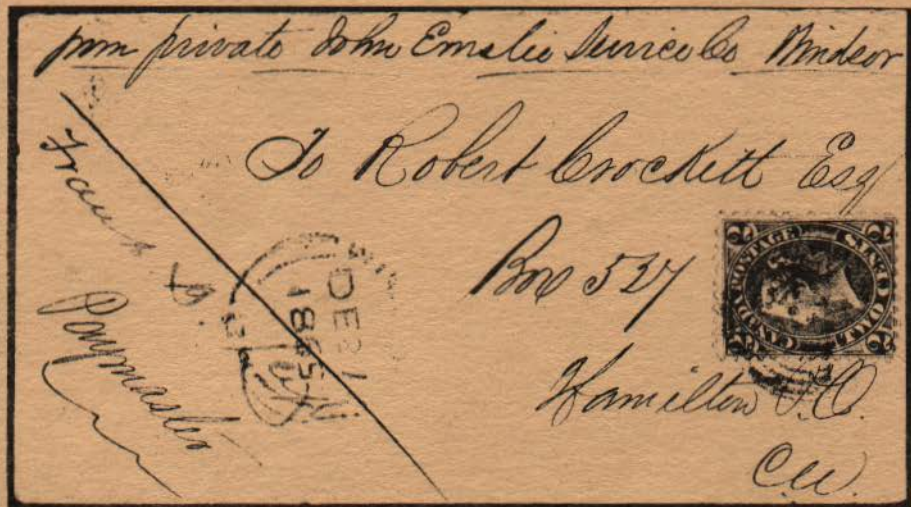 private John Emslie Service Co Windsor
To Robert Crockett Esq
Box 527
Hamilton P.O.
CW.
Paymaster
DE 1
1865
CANADA POSTAGE
TWO CENTS
2 2 2 2